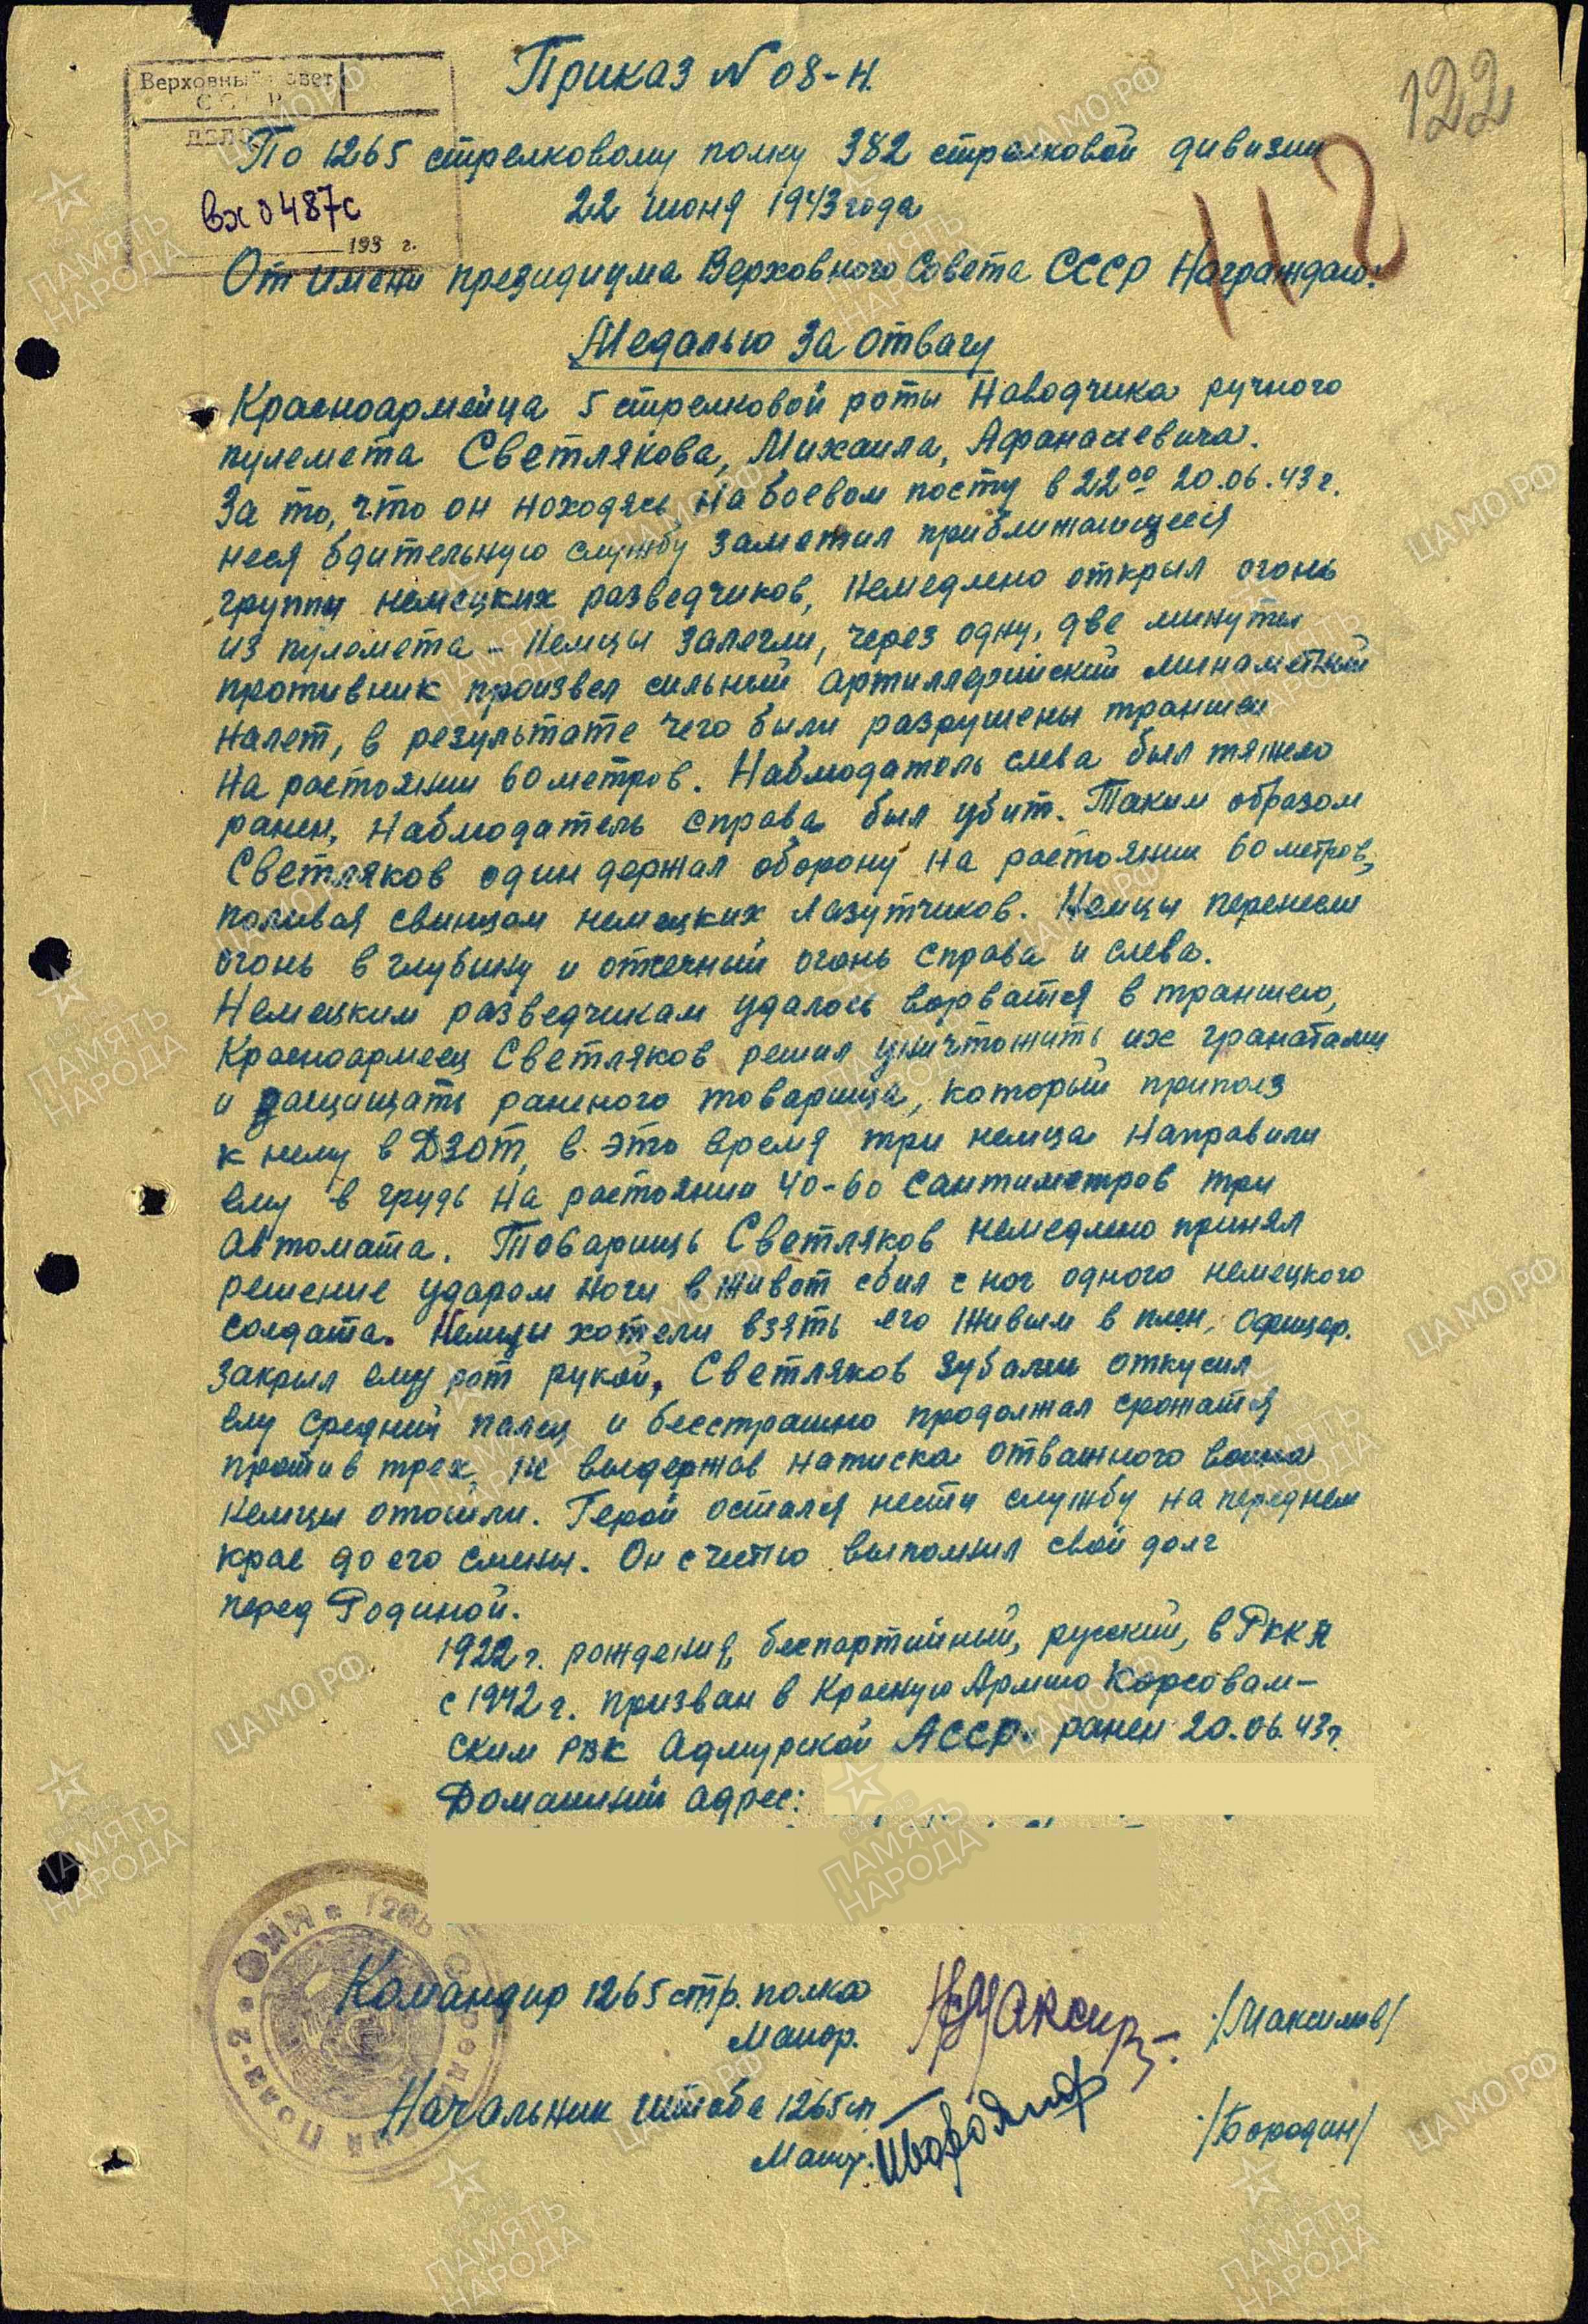 Приказ №08-н.
122
Верховный Совет
СССР
ДЕЛО
По 1265 стрелковому полку 382 стрелковой дивизии
вх 0487с
22 июня 1943 года
193 г.
112
От имени президиума Верховного Совета СССР Награждаю:
Медалью За отвагу
Красноармейца 5 стрелковой роты Наводчика ручного
пулемета Светлякова, Михаила, Афанасиевича.
За то, что он находясь на боевом посту в 22⁰⁰ 20.06.43 г.
неся бдительную службу заметил приближающиеся
группы немецких разведчиков, немедлено открыл огонь
из пулемета - Немцы залегли, через одну, две минуты
противник произвел сильный артиллерийский минаметный
налет, в результате чего были разрушены траншеи
на растоянии 60 метров. Наблюдатель слева был тяжело
ранен, наблюдатель справа был убит. Таким образом
Светляков один держал оборону на растоянии 60 метров,
поливая свинцом немецких лазутчиков. Немцы перенесли
огонь в глубину и отсечный огонь справа и слева.
Немецким разведчикам удалось ворватся в траншею,
Красноармеец Светляков решил уничтожить их гранатами
и защищать раненого товарища, который приполз
к нему в ДЗОТ, в это время три немца направили
ему в грудь на растоянии 40-60 сантиметров три
автомата. Товарищь Светляков немедлено принял
решение ударом ноги в живот сбил с ног одного немецкого
солдата. Немцы хотели взять его живым в плен, офицер.
закрыл ему рот рукой, Светляков зубами откусил
ему средний палец и бесстрашно продолжал сражатся
против трех, не выдержав натиска отважного воина
немцы отошли. Герой остался нести службу на переднем
крае до его смены. Он с честью выполнил свой долг
перед Родиной.
1922 г. рождения, беспартийный, русский, в РККА
с 1942 г. призван в Красную Армию Карсовай-
ским РВК Адмурской АССР. ранен 20.06.43 г.
Домашний адрес:
Командир 1265 стр. полка
Майор. /Максимов/
Начальник штаба 1265 сп
Майор. /Бородин/
ПАМЯТЬ НАРОДА
ЦАМО.РФ